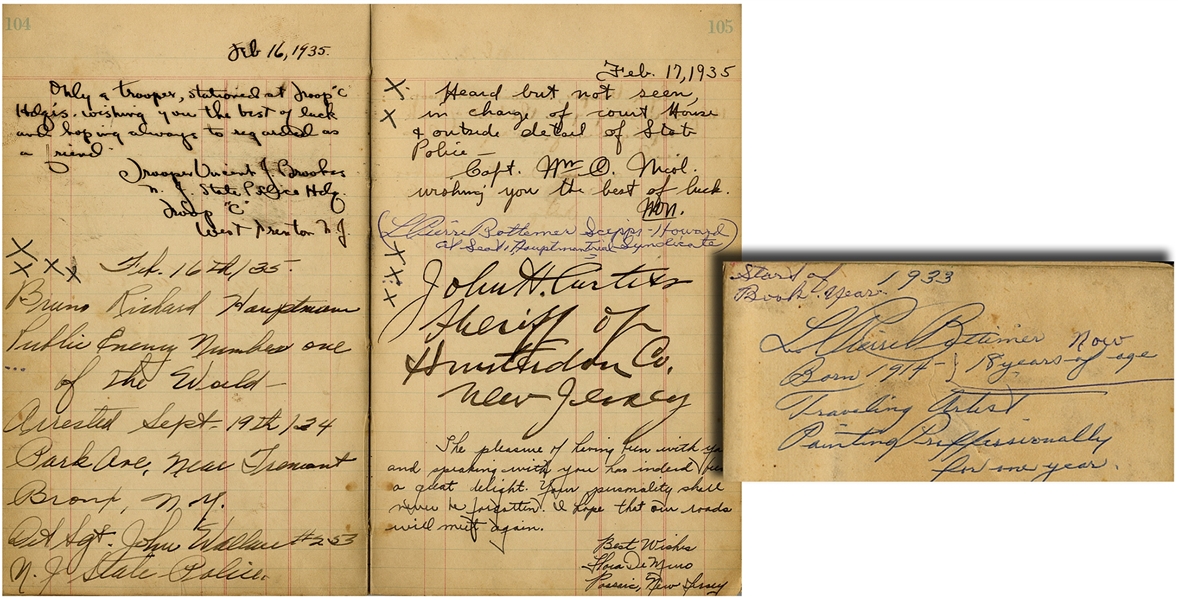 104
Feb 16, 1935.
Only a trooper, stationed at Troop "C"
Hdqts. wishing you the best of luck
and hoping always to regarded as
a friend
Trooper Vincent J. Brookes
N. J. State Police Hdq.
Troop "C"
West Trenton N.J.
X
X X X X
Feb. 16th/35.
Bruno Richard Hauptmann
Public Enemy Number one
of the World—
Arrested Sept. 19th/34
Park Ave, Near Tremont
Bronx, N.Y.
Det Sgt. John Wallace #253
N. J State Police.
105
Feb. 17, 1935
X Heard but not seen,
X in charge of court House
& outside detail of State
Police —
Capt. Wm O. Nicol.
wishing you the best of luck.
WON.
(L Pierre Bottemer Scripps-Howard
at Seat 1, Hauptman trial Syndicate)
X
X
X
John H. Curtiss
Sheriff of
Hunterdon Co.
New Jersey
The pleasure of having been with
and speaking with you has indeed
a great delight. Your personality shall
never be forgotten. I hope that our roads
will meet again.
Best Wishes
Flora De Muro
Passaic, New Jersey
Start of 1933
Book. Year.
L. Pierre Bottemer Now
Born 1914- } 18 years-of-age
Traveling Artist
Painting Proffessionally
for one year.